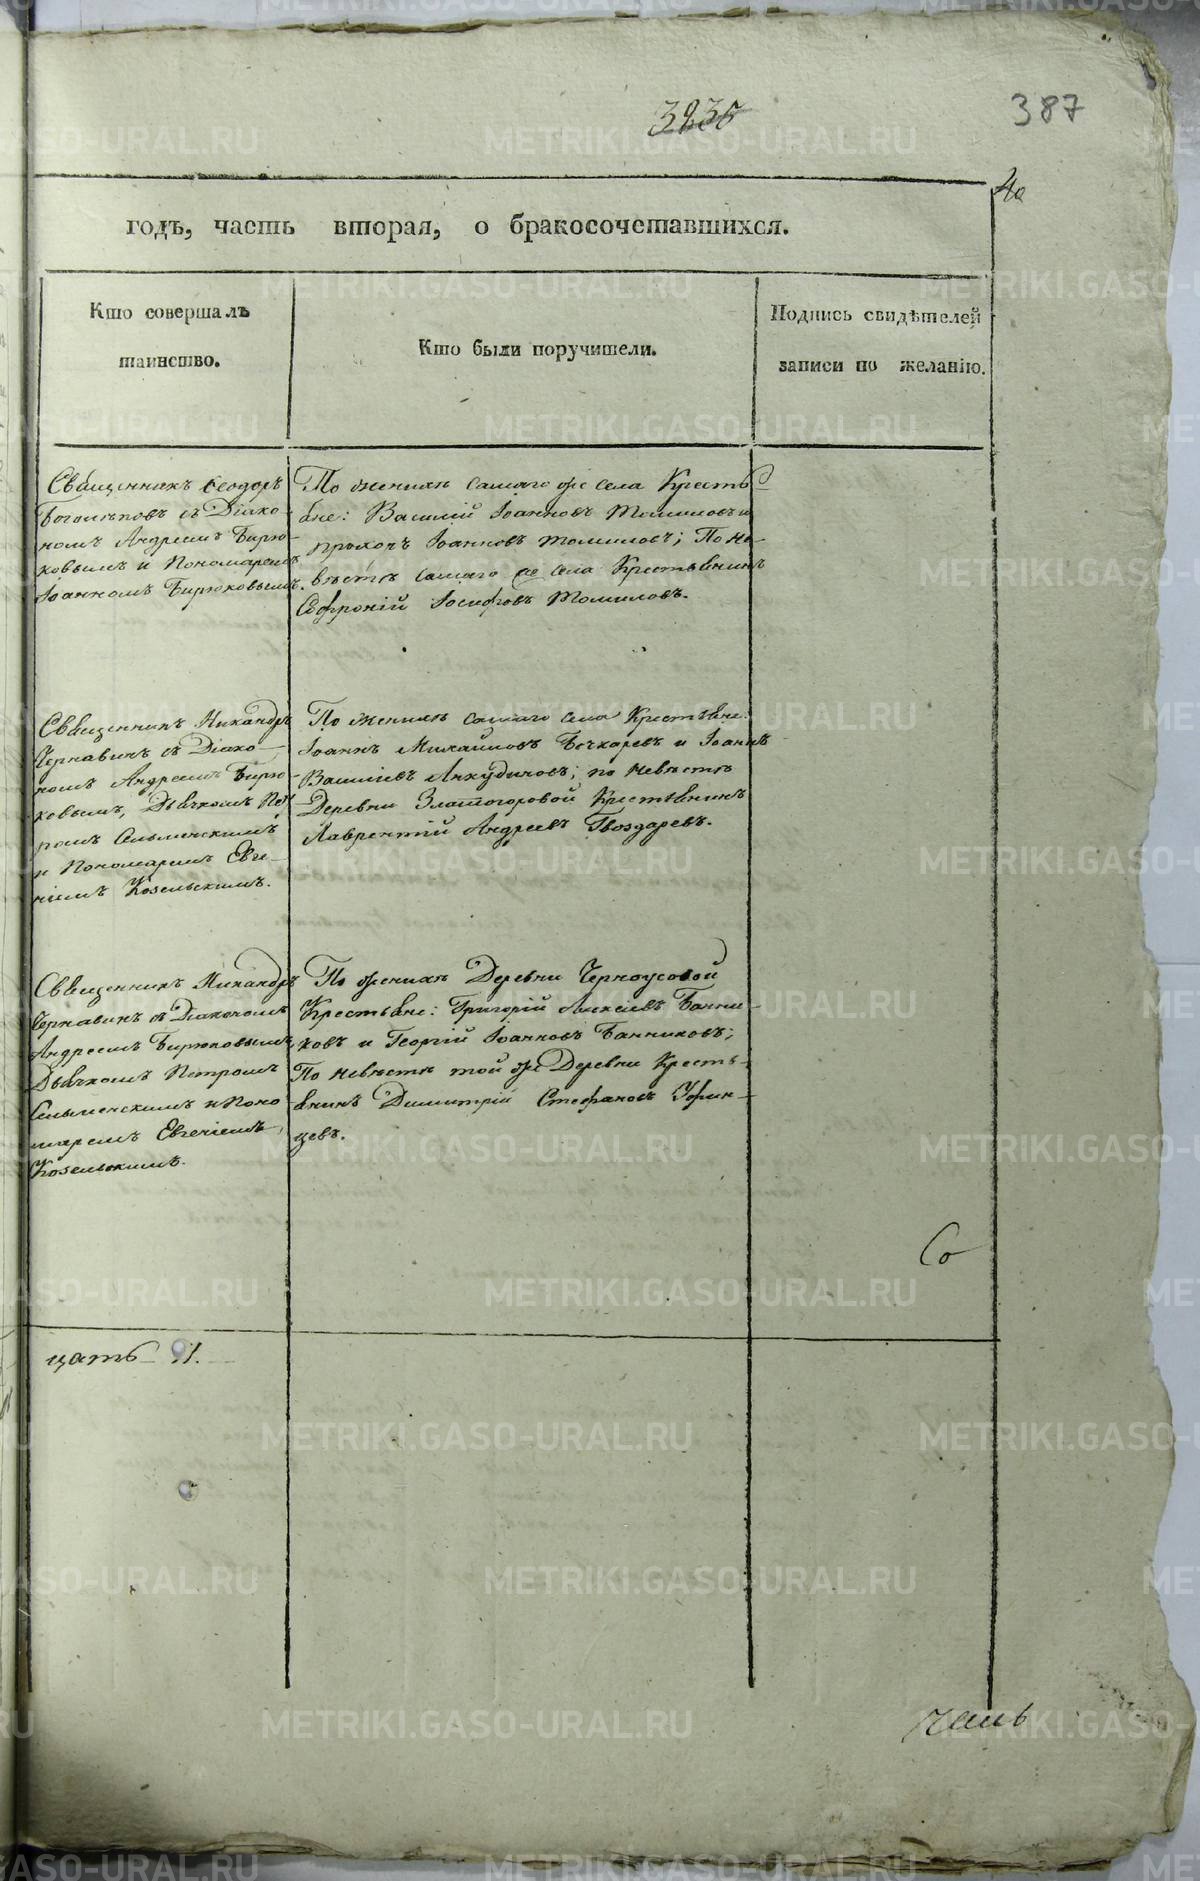 3235
387
40
годъ, часть вторая, о бракосочетавшихся.
Кто совершалъ
таинство.
Кто были поручители.
Подпись свидѣтелей
записи по желанію.
Священникъ Ѳеодоръ
Боголѣповъ съ Діако-
номъ Андреемъ Бирю-
ковымъ и Пономаремъ
Іоанномъ Бирюковымъ.
По женихѣ самаго же села Кресть-
яне: Василій Іоанновъ Томиловъ и
Прохоръ Іоанновъ Томиловъ; По не-
вѣстѣ самаго же села Крестьянинъ
Софроній Іосифовъ Томиловъ.
Священникъ Никандръ
Чернавинъ съ Діако-
номъ Андреемъ Бирю-
ковымъ, Дьячкомъ Пет-
ромъ Сельменскимъ
и Пономаремъ Евге-
ніемъ Козельскимъ.
По женихѣ самаго села Крестьяне:
Іоаннъ Михайловъ Бочкаревъ и Іоаннъ
Василіевъ Анкудиновъ; по невѣстѣ
Деревни Златогоровой Крестьянинъ
Лаврентій Андреевъ Гвоздаревъ.
Священникъ Никандръ
Чернавинъ съ Діакономъ
Андреемъ Бирюковымъ,
Дьячкомъ Петромъ
Сельменскимъ и Поно
маремъ Евгеніемъ
Козельскимъ.
По женихѣ Деревни Черноусовой
Крестьяне: Григорій Алексіевъ Банни-
ковъ и Георгій Іоанновъ Банниковъ;
По невѣстѣ той же Деревни Кресть-
янинъ Димитрій Стефановъ Уфин-
цевъ.
Со
цать 11.
чань